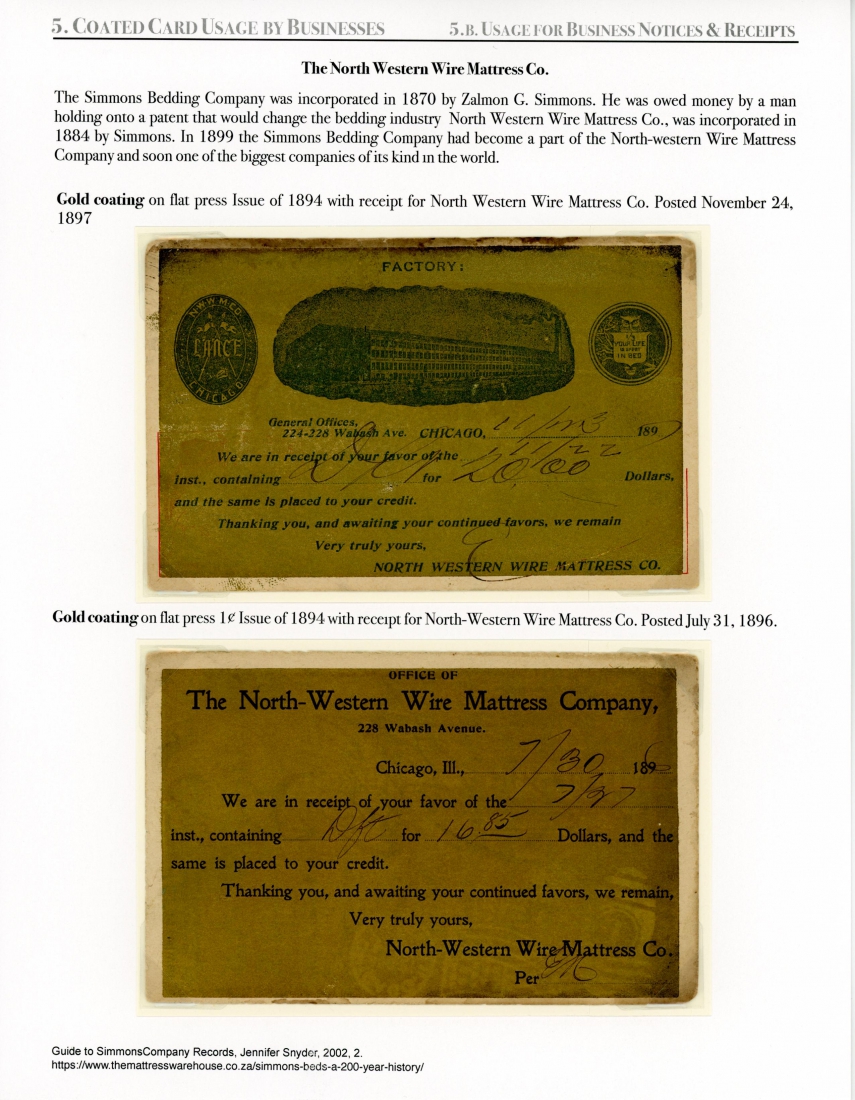 5. COATED CARD USAGE BY BUSINESSES 5.B. USAGE FOR BUSINESS NOTICES & RECEIPTS
The North Western Wire Mattress Co.
The Simmons Bedding Company was incorporated in 1870 by Zalmon G. Simmons. He was owed money by a man
holding onto a patent that would change the bedding industry North Western Wire Mattress Co., was incorporated in
1884 by Simmons. In 1899 the Simmons Bedding Company had become a part of the North-western Wire Mattress
Company and soon one of the biggest companies of its kind in the world.
Gold coating on flat press Issue of 1894 with receipt for North Western Wire Mattress Co. Posted November 24,
1897
FACTORY:
N.W.W.M.CO.
LANCE
CHICAGO
YOUR LIFE
IS SPENT
IN BED
General Offices,
224-228 Wabash Ave. CHICAGO, 1897
We are in receipt of your favor of the 11/22
inst., containing Dft for 20,00 Dollars,
and the same is placed to your credit.
Thanking you, and awaiting your continued favors, we remain
Very truly yours,
NORTH WESTERN WIRE MATTRESS CO.
Gold coating on flat press 1¢ Issue of 1894 with receipt for North-Western Wire Mattress Co. Posted July 31, 1896.
OFFICE OF
The North-Western Wire Mattress Company,
228 Wabash Avenue.
Chicago, Ill., 7/30 1896
We are in receipt of your favor of the 7/27
inst., containing Dft for 16.85 Dollars, and the
same is placed to your credit.
Thanking you, and awaiting your continued favors, we remain,
Very truly yours,
North-Western Wire Mattress Co.
Per
Guide to SimmonsCompany Records, Jennifer Snyder, 2002, 2.
https://www.themattresswarehouse.co.za/simmons-beds-a-200-year-history/